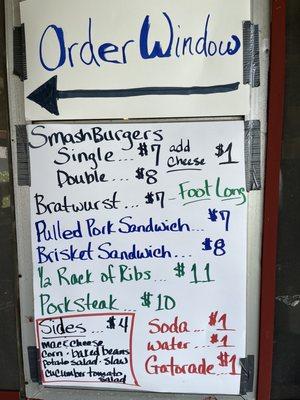 Order Window
SmashBurgers
Single... $7 add cheese $1
Double... $8
Bratwurst... $7 - Foot Long
Pulled Pork Sandwich... $7
Brisket Sandwich... $8
1/2 Rack of Ribs... $11
Pork Steak... $10
Sides... $4
mac & cheese
corn · baked beans
potato salad · slaw
cucumber tomato
salad
Soda... $1
Water... $1
Gatorade $1